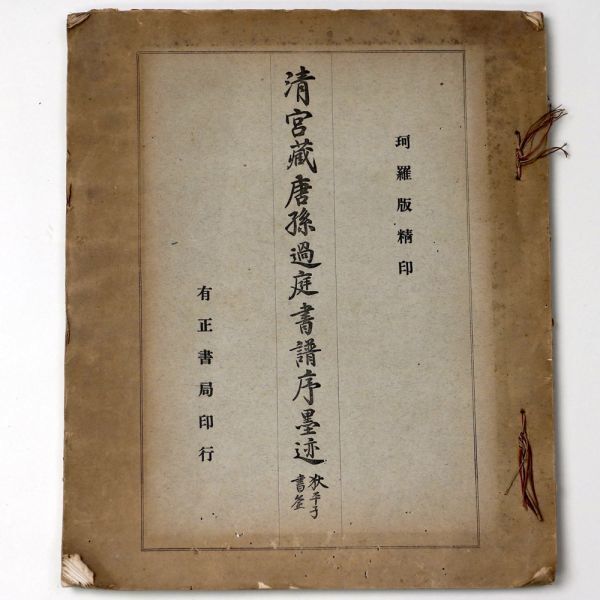 珂羅版精印
清宮藏唐孫過庭書譜序墨迹
狄平子
書簽
有正書局印行